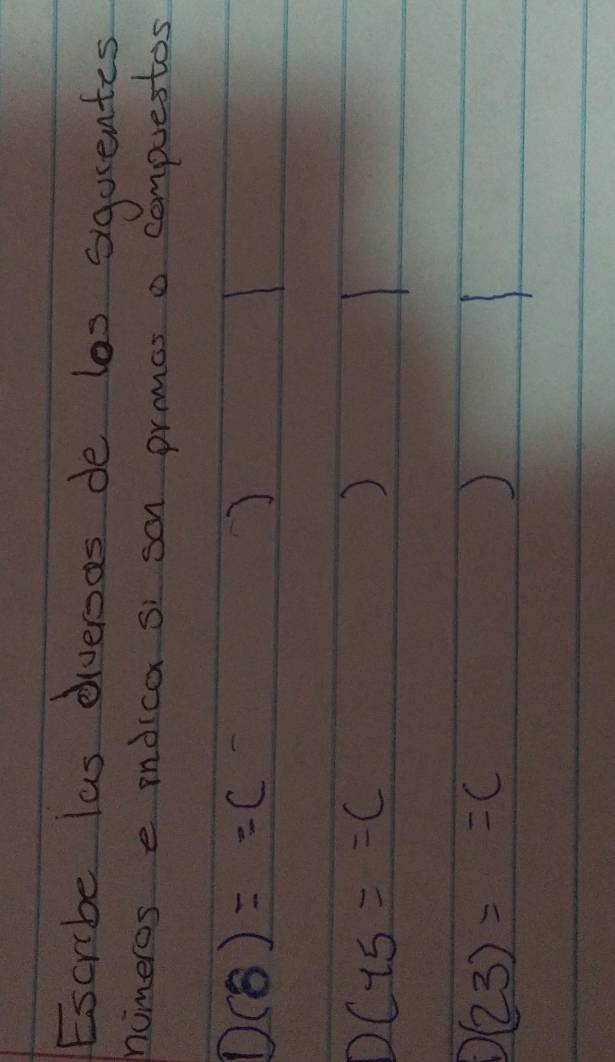 Escribe las diversas de los siguientes
números e indica si son primos o compuestos
D(8) = =( ) |
D(45 = =( ) |
D(23) = =( ) |